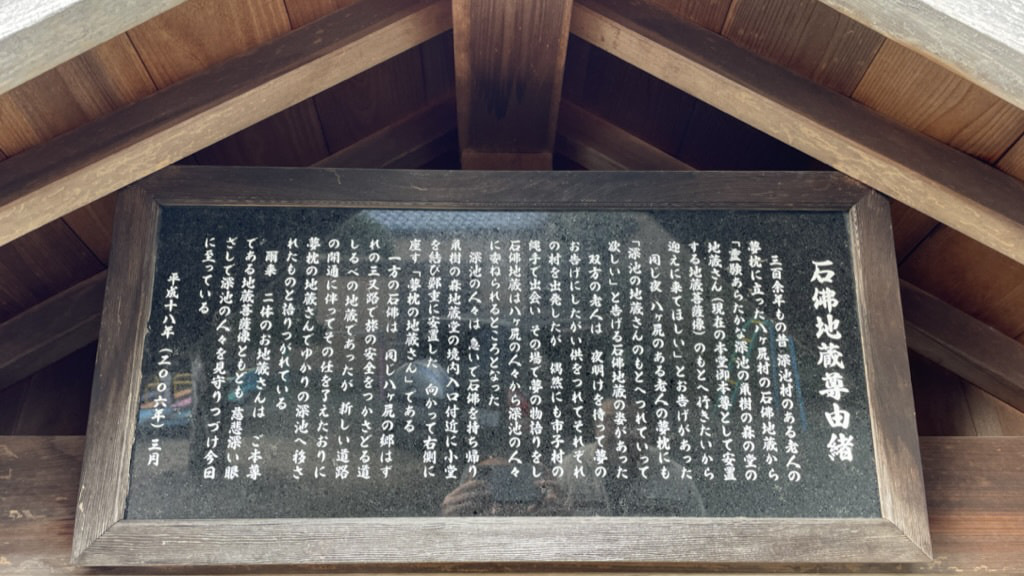 石佛地蔵尊由緒
三百余年もの昔 深池村のある老人の
夢枕に立った八ヶ尻村の石佛地蔵から
「霊験あらたかな深池の巣樹の森の堂の
地蔵さん(現在の本堂御本尊として安置
する地蔵菩薩像)のもとへ行きたいから
迎えに来てほしい」とお告げがあった
同じ夜 八ヶ尻のある老人の夢枕にも
「深池の地蔵さんのもとへつれていって
欲しい」と告げる石佛地蔵の姿があった
双方の老人は 夜明けを待って夢の
お告げにしたがい供をつれてそれぞれ
の村を出発したが 偶然にも市子村の
縄手で出会い その場で夢の物語りをし
石佛地蔵は八ヶ尻の人々から深池の人々
に委ねられるところとなった
深池の人々は 急いで石佛を持ち帰り
巣樹の森地蔵堂の境内入口付近に小堂
を結び鄭重に安置し 向かって右側に
座す「夢枕の地蔵さん」である
一方の石佛は 同じ八ヶ尻の郷はず
れの三又路で旅の安全をつかさどる道
しるべの地蔵であったが 新しい道路
の開通に伴ってその任を了えたおりに
夢枕の地蔵さんしてゆかりの深池へ移さ
れたものと語りつがれている
爾来 二体のお地蔵さんは ご本尊
である地蔵菩薩像ともども 慈悲深い眼
ざしで深池の人々を見守りつづけ今日
に至っている
平成十八年 (二〇〇六年) 三月